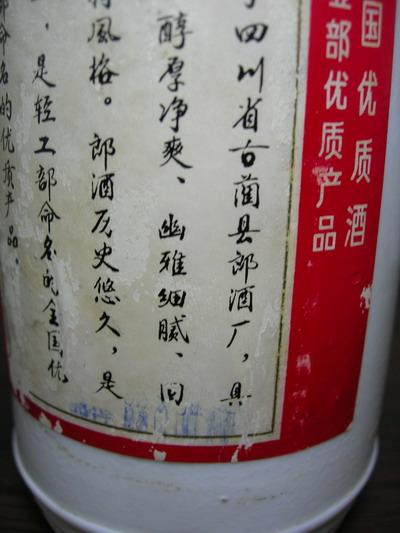 国优质酒
部优质产品
四川省古蔺县郎酒厂，具
醇厚净爽、幽雅细腻、回
风格。郎酒历史悠久，是
，是轻工部命名的全国优
命名的优质产品。